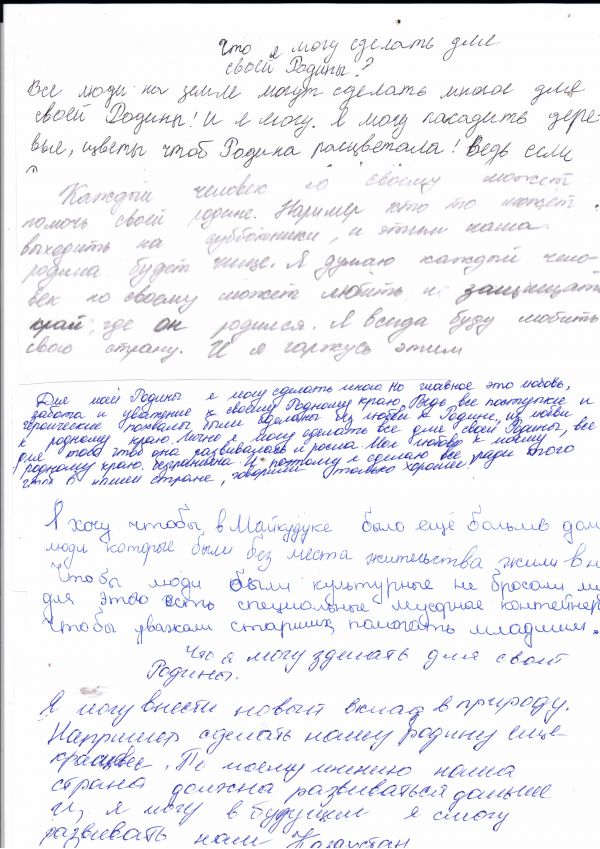 Что я могу сделать для
своей Родины?
Все люди на земле могут сделать многое для
своей Родины! И я могу. Я могу посадить дере-
вья, цветы чтоб Родина расцветала! Ведь если
Каждый человек по своему может
помочь своей родине. Наример кто то может
выходить на субботники, и этим наша
родина будет чище. Я думаю каждый чело-
век по своему может любить и защищать
край, где он родился. Я всегда буду любить
свою страну. И я горжусь этим
Для моей Родины я могу сделать много но главное это любовь,
забота и уважение к своему Родному краю. Ведь все поступки и
героические похвалы были сделаны без любви к Родине, из любви
к родному краю. Лично я могу сделать все для своей Родины, все
для того чтоб она развивалась и росла. Моя любовь к моему
родному краю. безгранична. И поэтому я сделаю все ради этого
чтоб о нашей стране, говорили только хорошее
Я хочу чтобы в Майкудуке было ещё больше дом
люди которые были без места жительства жили в н
Чтобы люди были культурные не бросали му
для этого есть специальные мусорные контейнер
Чтобы уважали старших, помогать младшим.
Что я могу зделать для своей
Родины.
Я могу внести новый вклад в природу.
Например сделать нашу родину еще
красивее. По моему мнению наша
страна должна развиваться дальше
И, я могу в будущем я смогу
развивать наш Казахстан